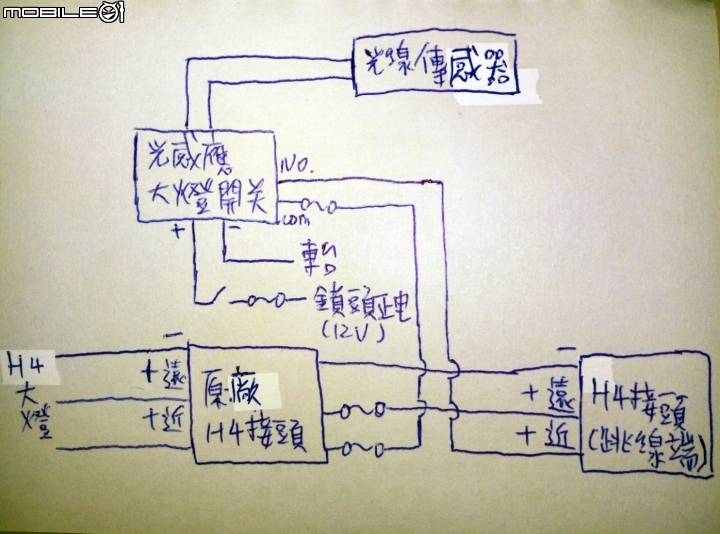 MOBILE01
光線傳感器
光感應
大灯登開关
NO.
com
+
-
車台
鎖頭正电
(12V)
-
H4
大
灯登
+遠
+近
原廠
H4接頭
-
+遠
+近
H4接頭
(跳線端)